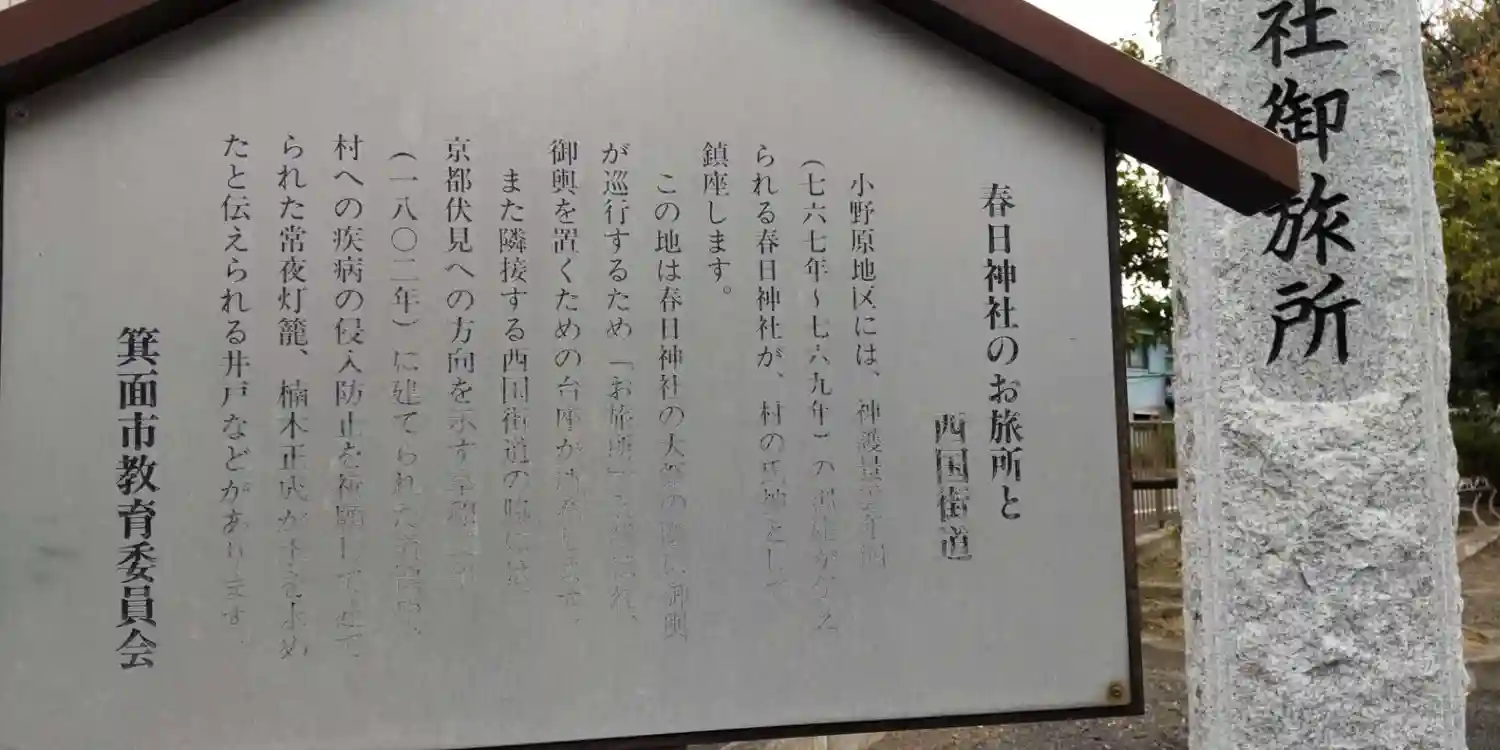 春日神社のお旅所と
西国街道
小野原地区には、神護景雲年間
(七六七年〜七六九年)の
られる春日神社が、村の氏神として
鎮座します。
この地は春日神社の大祭の際に御輿
が巡行するため「お旅所」と
御輿を置くための台座が
また隣接する西国街道の
京都伏見への方向を示す
(一八〇二年)に建てられた
村への疾病の侵入防止を祈願して建て
られた常夜灯籠、楠木正成が水を求め
たと伝えられる井戸などがあります。
箕面市教育委員会
社御旅所